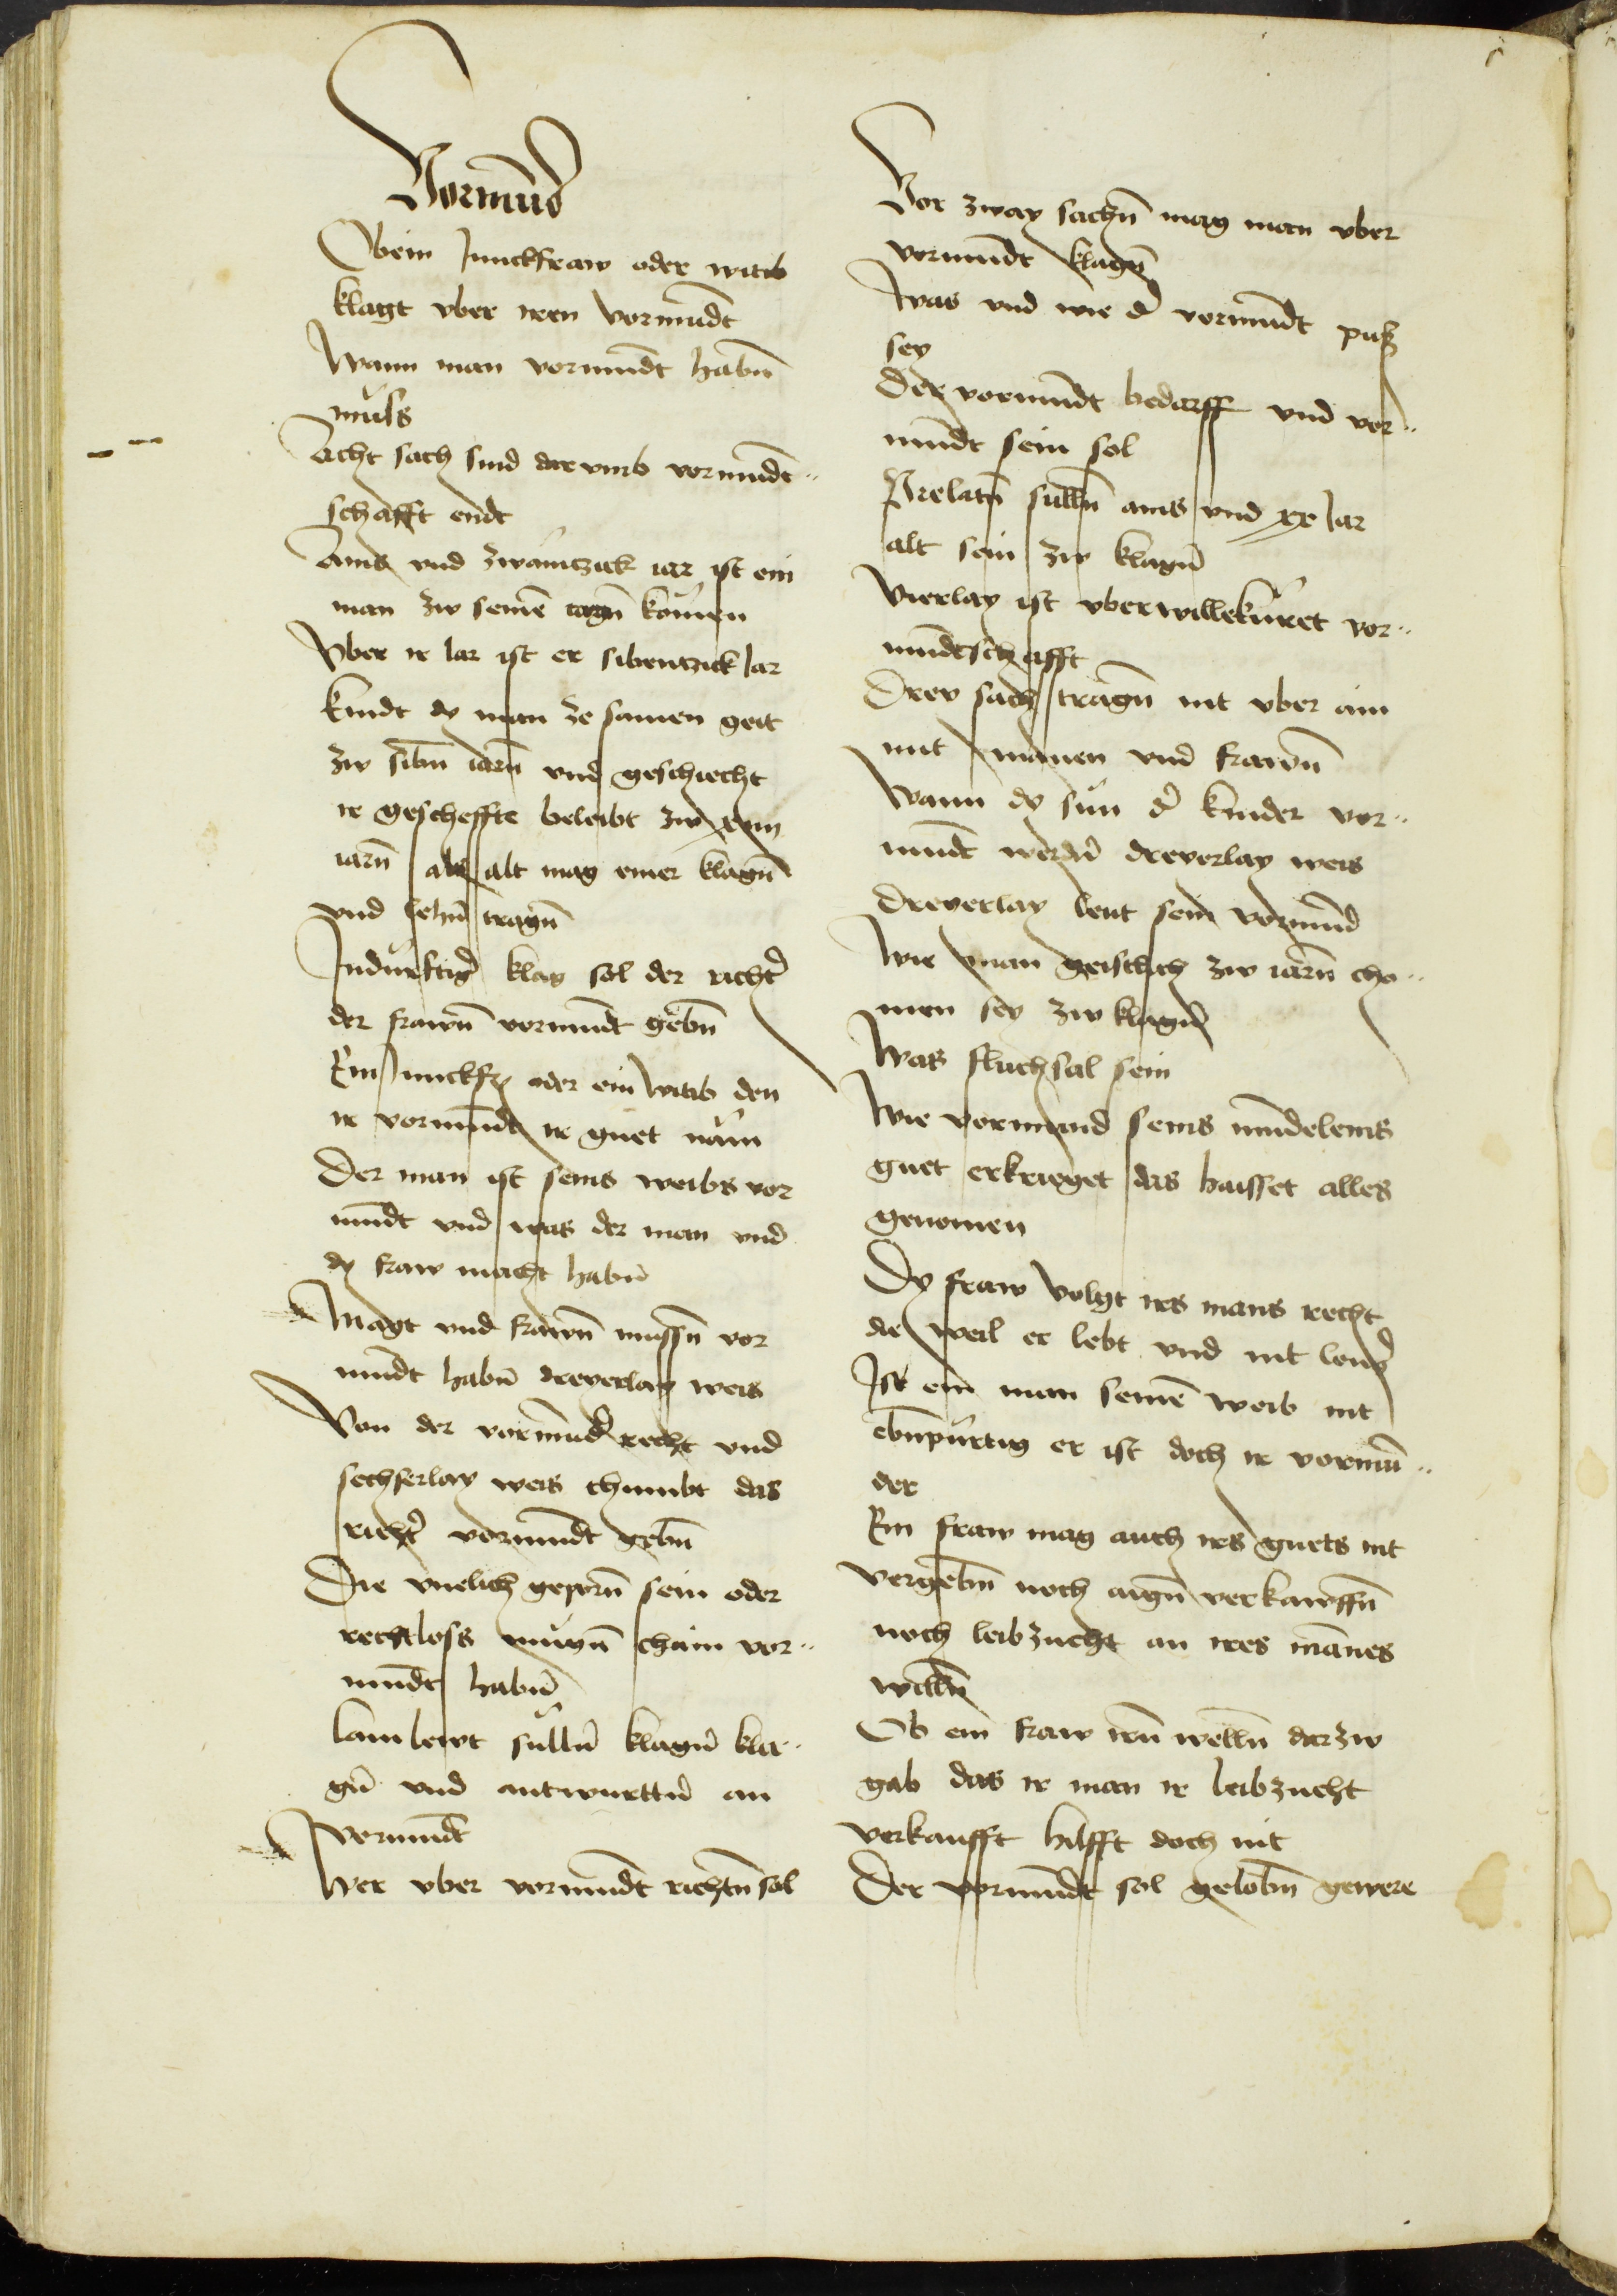 Vormūnd
Ob ein Junckfraw oder witib
klagt vber iren vormūdt
Wann man vormūndt habn̄
muͤss
Acht sach sind dar vmb vormūndt¨
schafft endt
Ains vnd zwaintzick iar ist ein
man zw seinē tagn̄ komen
Vber lx Iar ist er sibentzick Iar
Kindt dy man ze samen geit
zw sibn̄ iarn̄ vnd geschiecht
ir geschefft beleibt zw xiiii
iarn̄ als alt mag einer klagn̄
vnd lehn̄ tragn̄
In duͤrftigr̄ klag sol der richtr̄
der frawn̄ vormūndt gebn̄
Ein Junckfr̄ oder ein witib den
ir vormūndt ir guet naͤm
Der man ist seins weibs vor
mūndt vnd was der man vnd
dy fraw macht habn̄
Magt vnd frawn̄ mussn̄ vor
mūndt habn̄ dreyerlay weis
Von der vormūdr̄ recht vnd
sechserlay weis chumbt das
richtr̄ vormūndt gebn̄
Die vnelich geporn̄ sein oder
rechtloss mugn̄ chain vor¨
mūndt habn̄
Lam lewt sulln̄ klagn̄ kla¨
gn̄ vnd antwurttn̄ an
vormūndt
Wer vber vormūndt richtn̄ sol
Vor zway sachn̄ mag man vber
vormūndt klagn̄
Was vnd wie dr̄ vormūndt puss
sey
Der vormūndt bedarff vnd vor¨
mūndt sein sol
Prelatn̄ sulln̄ ains vnd xx Iar
alt sein zw klagn̄
Vierlay ist vber willekuͤret vor¨
mūndtschafft
Drey sach tragn̄ nit vber ain
mit mannen vnd frawn̄
Wann dy sun dr̄ kinder vor¨
mūndt werdn̄ dreyerlay weis
Dreyerlay leut sein vormūnd
Wie man geistlich zw iarn̄ cho¨
men sey zw klagn̄
Was fluchsal sein
Wie vormund seins mūndeleins
guet erkrieget das haisset alles
genomen
Dy fraw volgt irs mans recht
die weil er lebt vnd nit lengr̄
Ist ein man seinē weib nit
ebn̄puͤrtig er ist doch ir vormū¨
der
Ein fraw mag auch irs guets nit
vergebn̄ noch aign̄ verkawffn̄
noch leibzucht an ires mānes
willn̄
Ob ein fraw irn̄ welln̄ dar zw
gab das ir man ir leibzucht
verkaufft hilfft doch nit
Der vormūndt sol gelobn̄ gewere